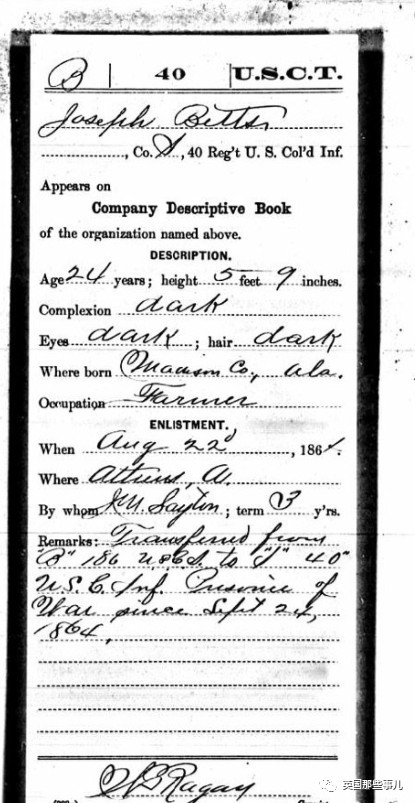 B | 40 | U.S.C.T.
Joseph Betts
, Co. , 40 Reg't U. S. Col'd Inf.
Appears on
Company Descriptive Book
of the organization named above.
DESCRIPTION.
Age 24 years; height 5 feet 9 inches.
Complexion dark
Eyes dark ; hair dark
Where born Madison Co., Ala.
Occupation Farmer
ENLISTMENT.
When Aug 22d , 1864.
Where
By whom ; term 3 y'rs.
Remarks: Transferred from
"B" to 40"
U.S.C. Inf. Prisoner of
War since Sept 24,
1864.
Ragan
英国那些事儿